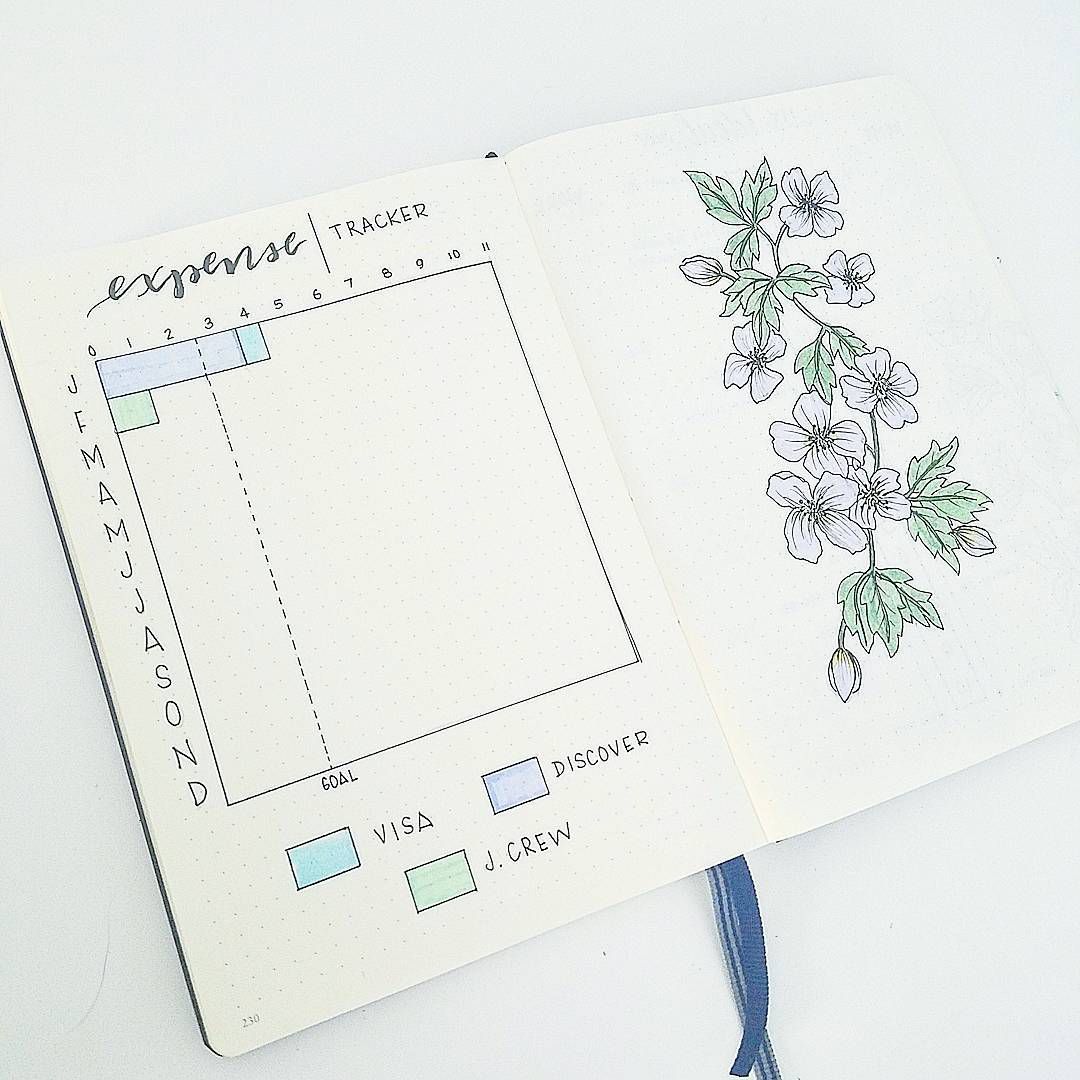 expense | TRACKER
0 1 2 3 4 5 6 7 8 9 10 11
J
F
M
A
M
J
J
A
S
O
N
D
GOAL
DISCOVER
VISA
J. CREW
230